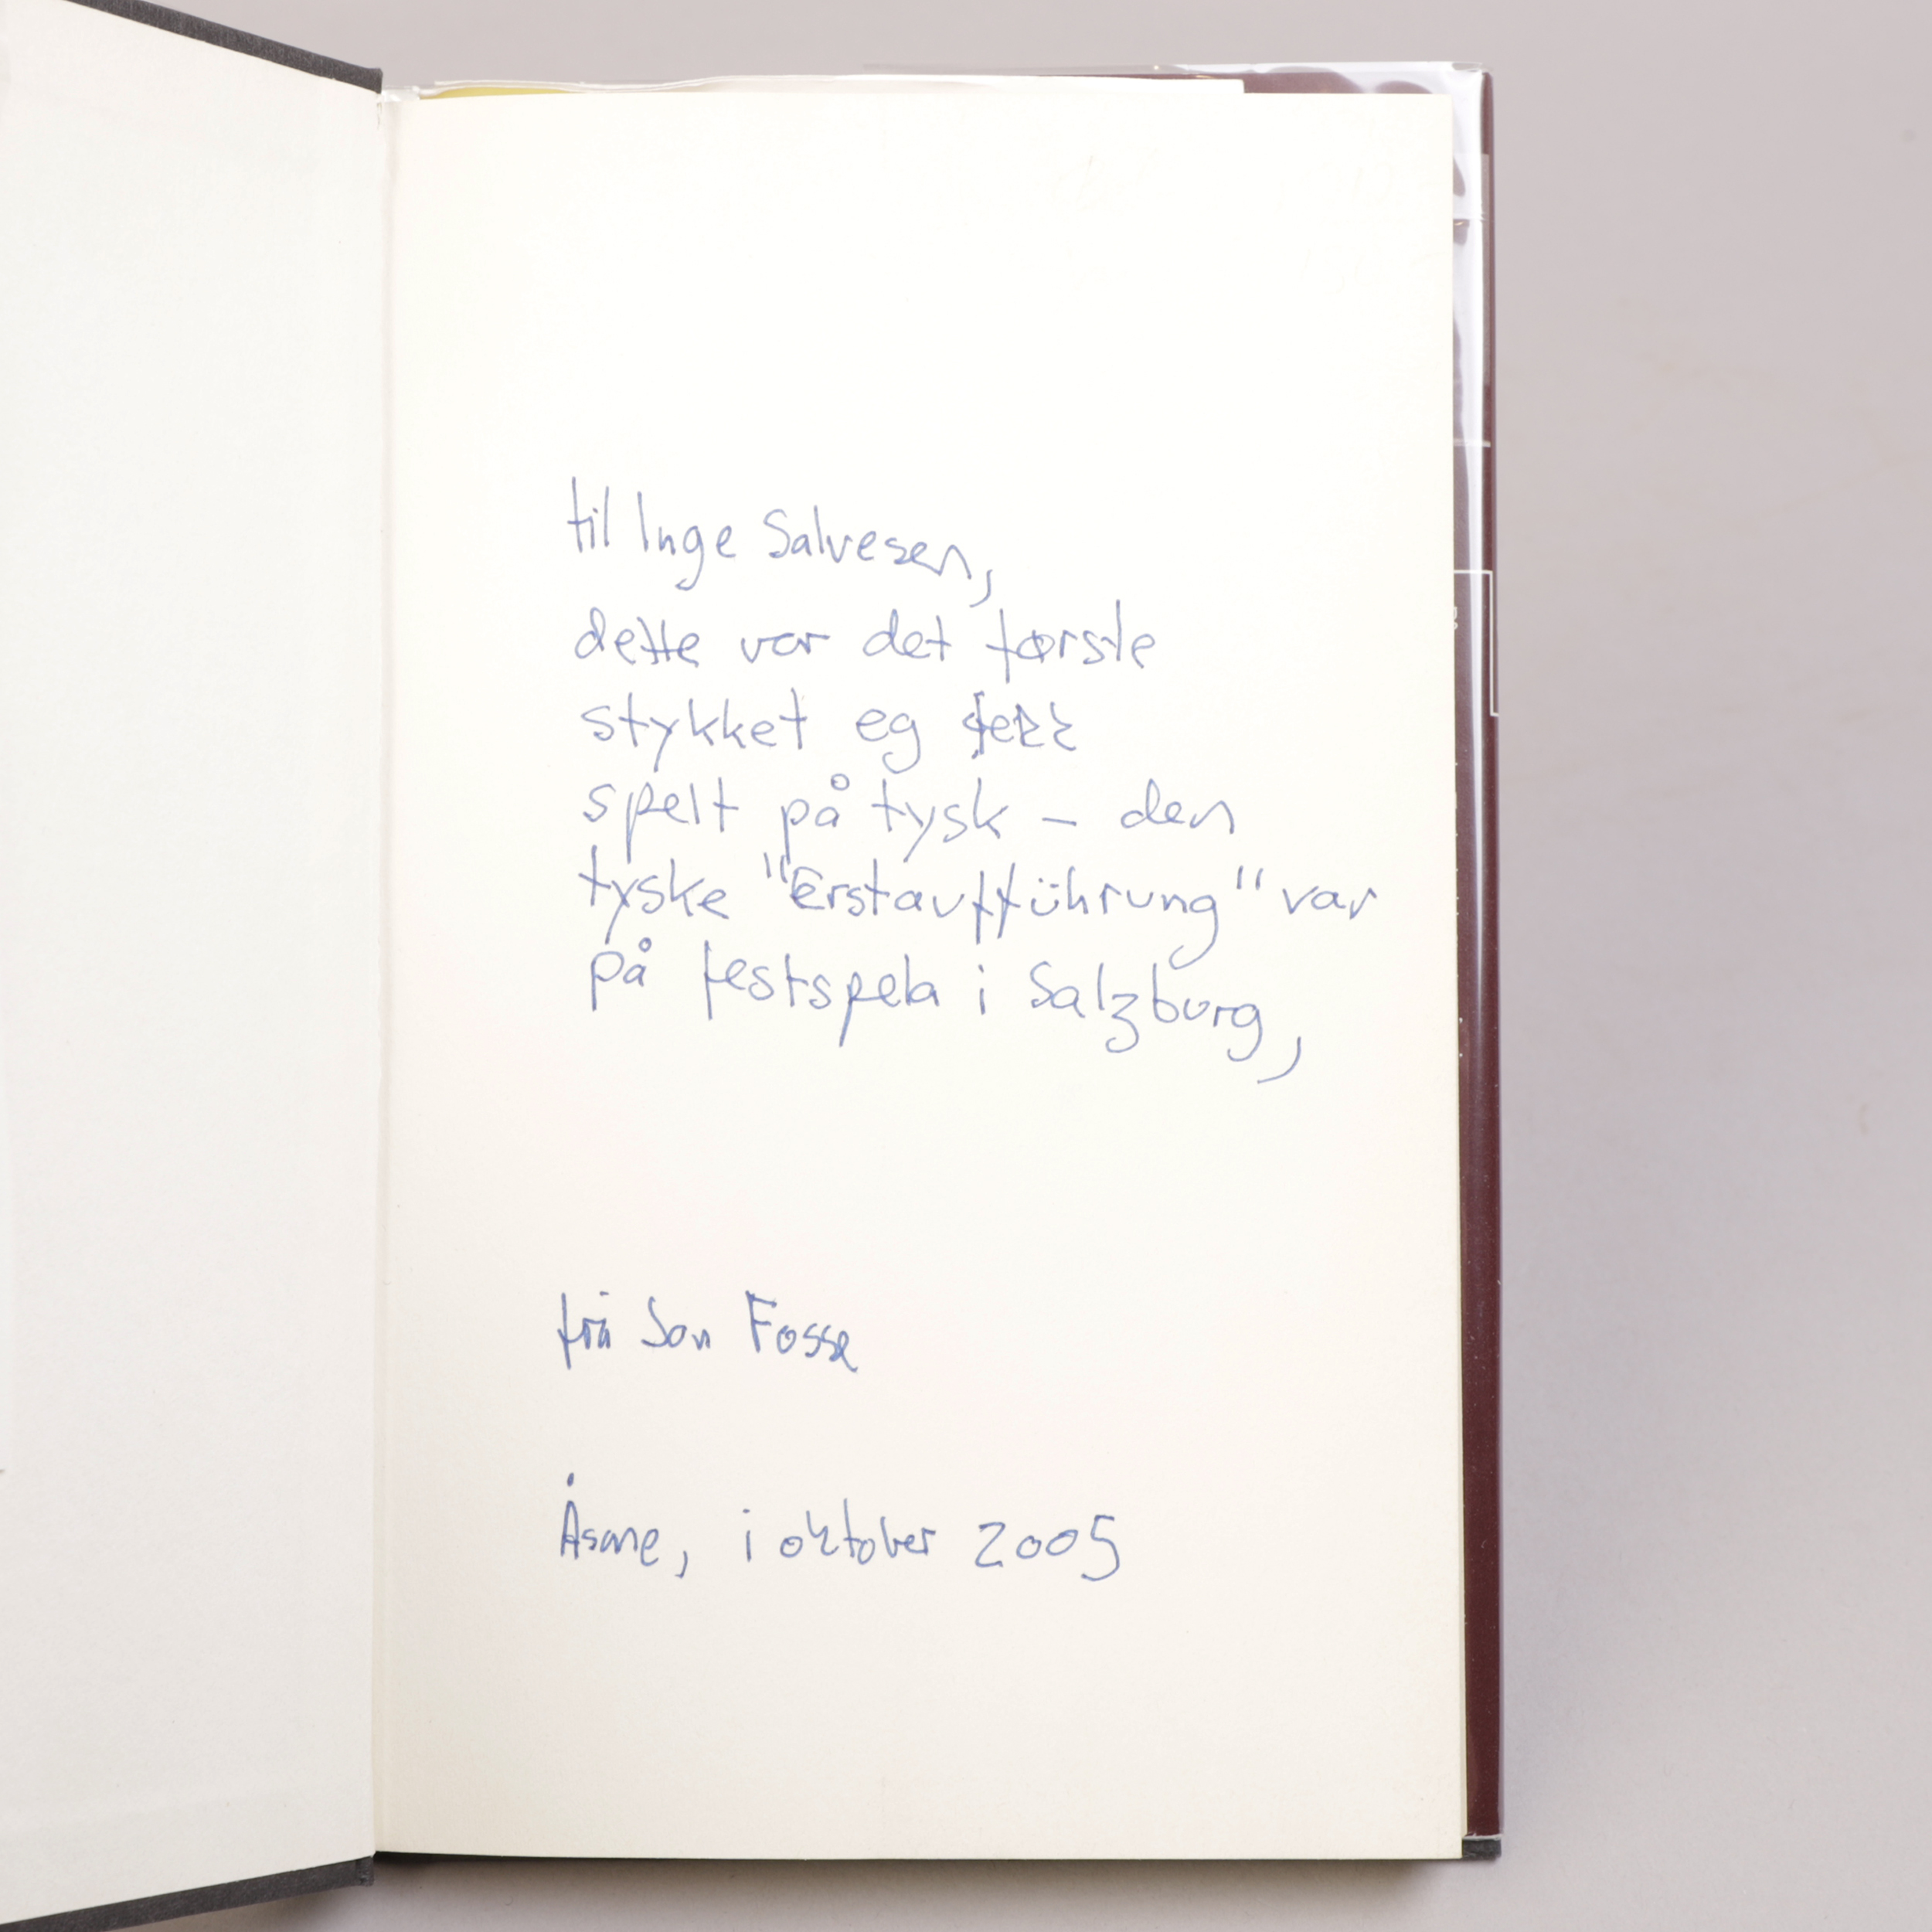 til Inge Salvesen,
dette var det første
stykket eg fekk
spelt på tysk – den
tyske "Erstaufführung" var
på festspela i Salzburg,
frå Jon Fosse
Åsane, i oktober 2005